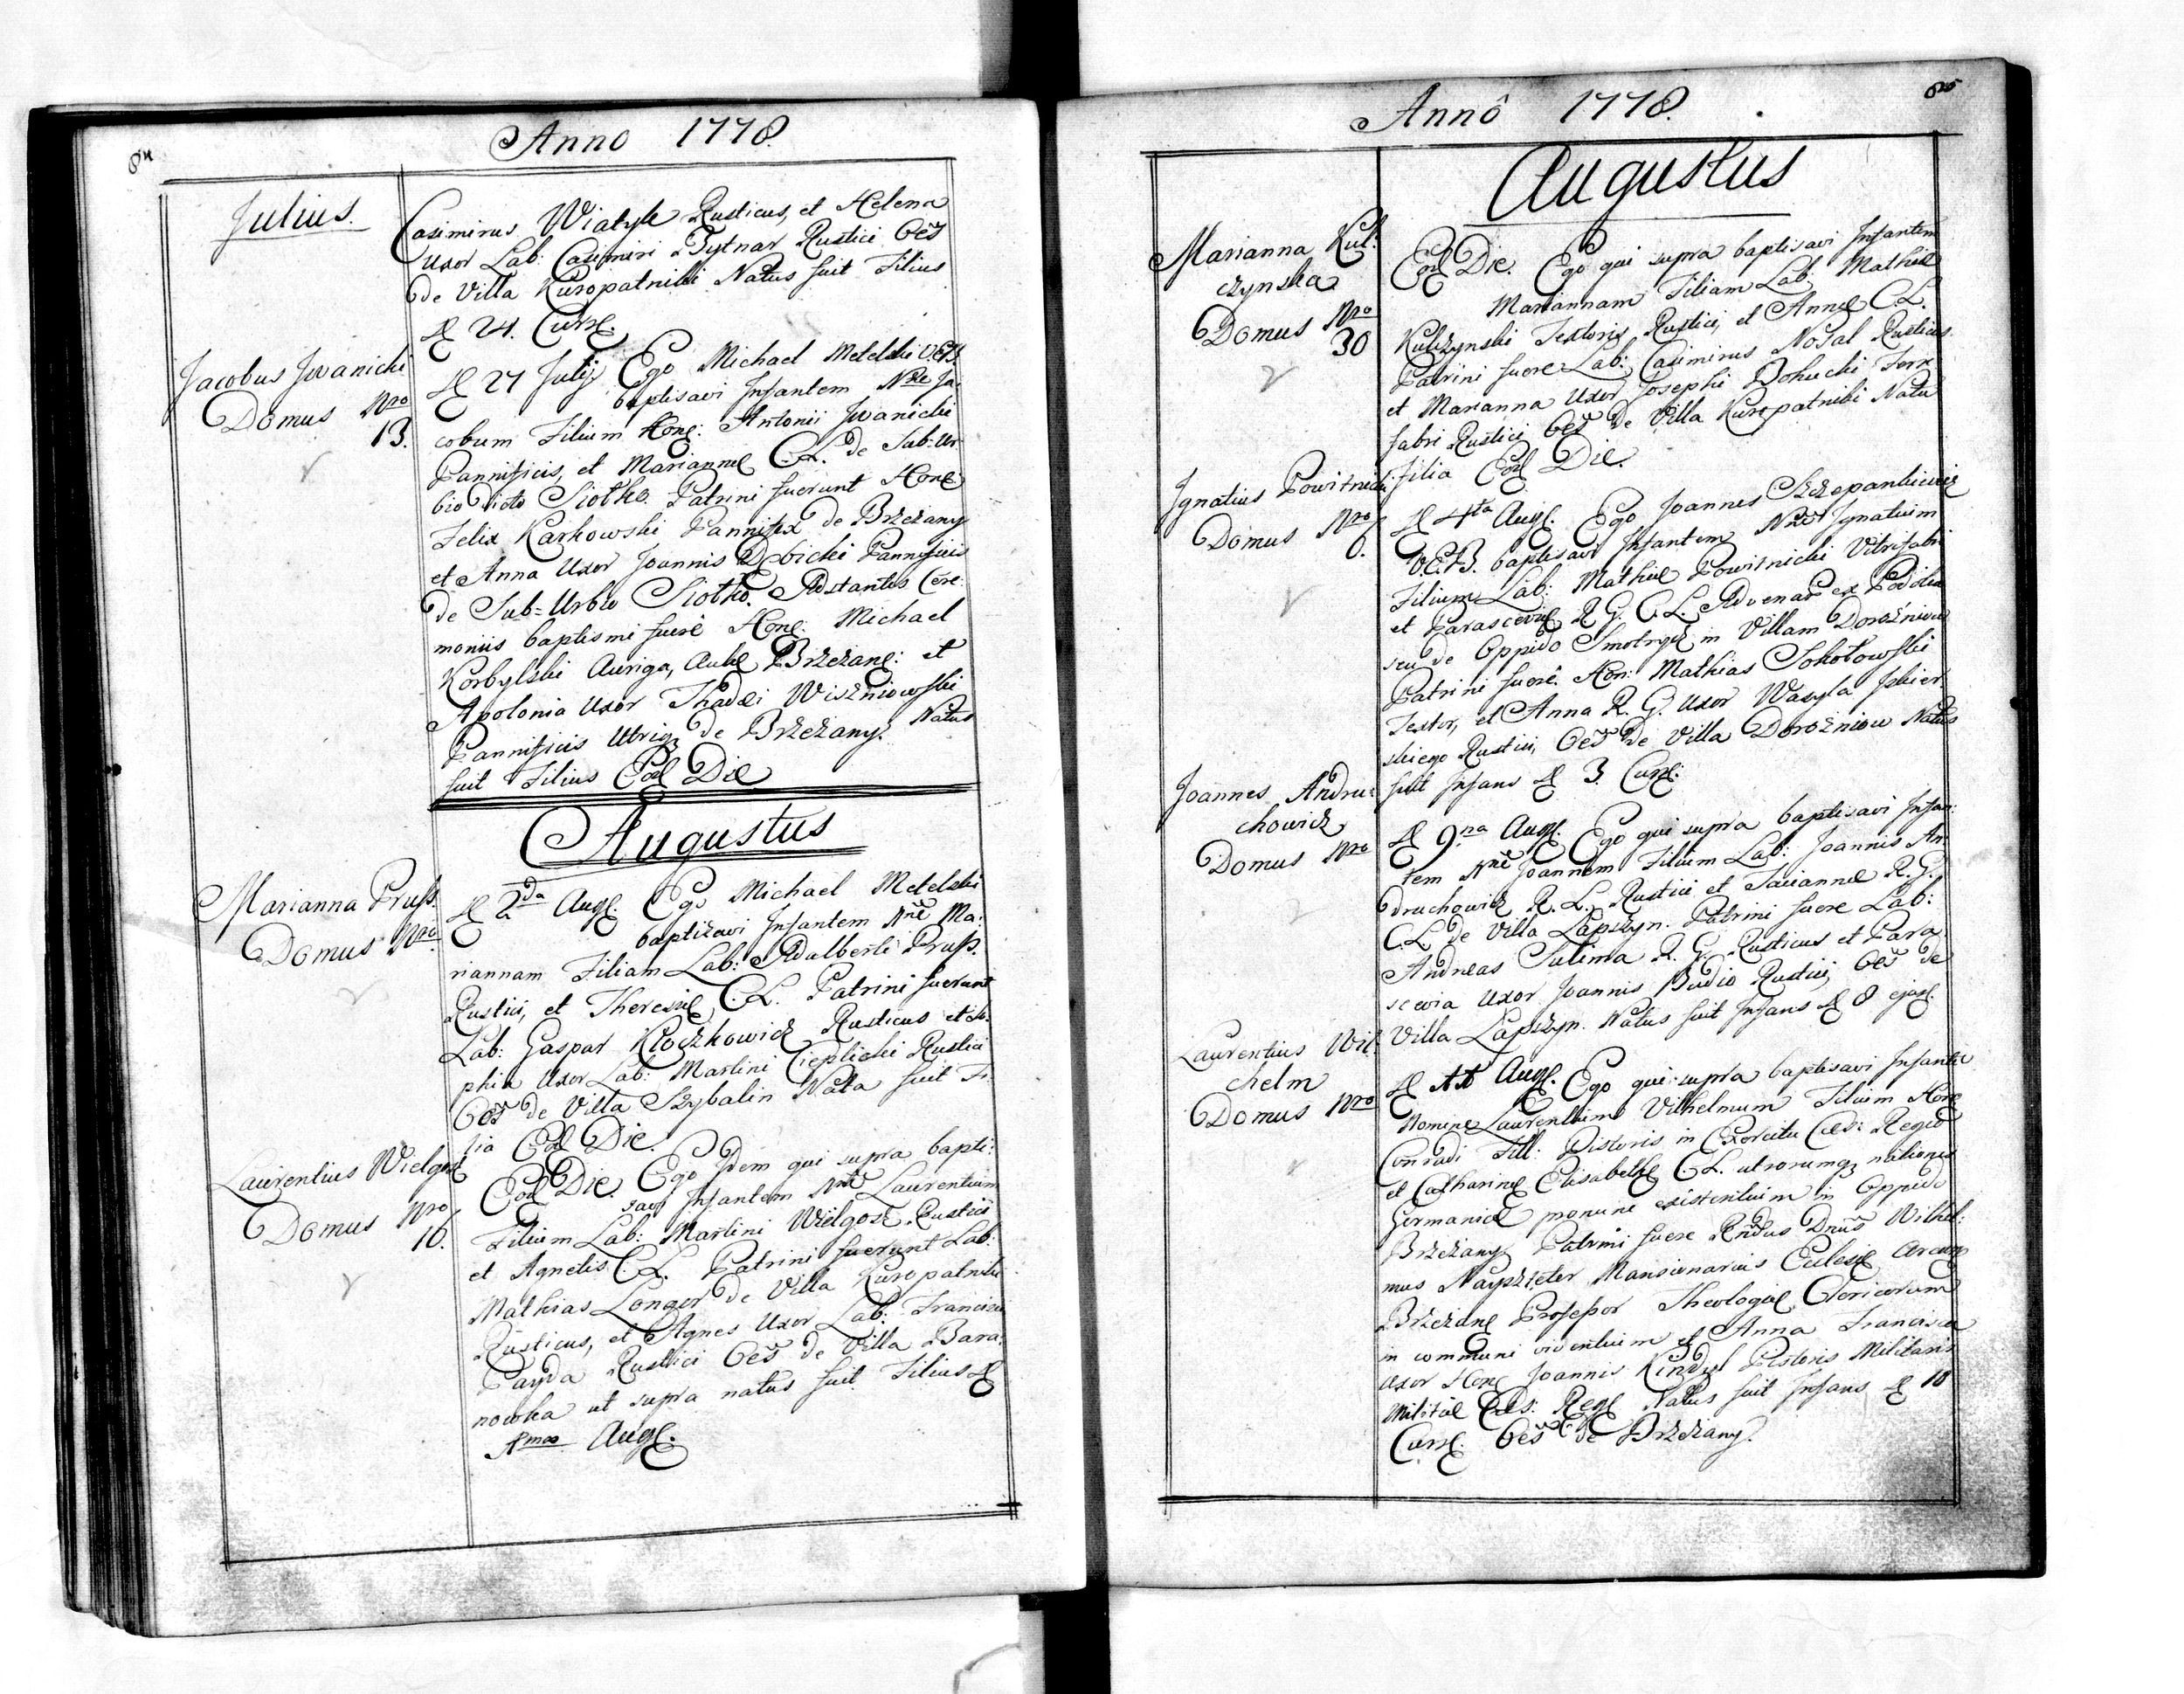 84
Anno 1778.
Julius.
Casimirus Wiatyk Rusticus, et Helena
Uxor Lab: Casimiri Tytnar Rustici
de Villa Kuropatniki Natus fuit Filius
24. Curr.
Jacobus Jwanicki
Domus Nro
13.
27 Julij Ego Michael Metelski V.E.B.
baptisavi Infantem Nne Ja:
cobum Filium Hon: Antonii Jwanicki
Pannificis, et Mariannæ C.L. de Sub:Ur:
bio Siołko. Patrini fuerunt Hon
Felix Karkowski Pannifex de Brzezany
et Anna Uxor Joannis Dębicki Pannificis
de Sub=Urbio Siołko. Adstantes Cere:
moniis baptismi fuere Hon: Michael
Korbylski Auriga, Aulæ Brzezan: et
Apolonia Uxor Thadei Wiszniowski
Pannificis de Brzezany. Natus
fuit Filius Eod Die
Augustus
Marianna Pruss.
Domus Nro
2da Aug. Ego Michael Metelski
baptizavi Infantem Nne Ma:
riannam Filiam Lab: Adalberti Pruss.
Rustici, et Theresiæ C.L. Patrini fuerunt
Lab: Gaspar Kłoczkowicz Rusticus et So:
phia Uxor Lab: Martini Cieplicki Rustici
de Villa Szybalin Nata fuit Fi:
lia Eod Die.
Laurentius Wielgosz
Domus Nro
10.
Eod Die. Ego Idem qui supra bapti:
savi Infantem Nne Laurentium
Filium Lab: Martini Wielgosz Rustici
et Agnetis C.L. Patrini fuerunt Lab:
Mathias Longer de Villa Kuropatniki
Rusticus, et Agnes Uxor Lab: Francisci
Payda Rustici de Villa Bara:
nowka ut supra natus fuit Filius
1ma Aug.
85
Annô 1778.
Augustus
Marianna Kul:
czynska
Domus Nro
30
Eod Die. Ego qui supra baptisavi Infantem
Mariannam Filiam Lab: Mathiæ
Kulczynski Textoris Rustici, et Annæ C.L.
Patrini fuere Lab: Casimirus Nosal Rusticus
et Marianna Uxor Josephi Bohucki Ferr
fabri Rustici de Villa Kuropatniki Nata
Filia Eod Die.
Ignatius Powitnicki
Domus Nro
6.
4ta Aug. Ego Joannes Szczepankiewicz
V.E.B. baptisavi Infantem Nne Ignatium
Filium Lab: Mathiæ Powitnicki Vitrifabri
et Parasceviæ R.G. C.L. Advenar ex Podolia
seu de Oppido Smotrycz in Villam Dorożniow
Patrini fuere. Hon: Mathias Sokołowski
Textor, et Anna R.G. Uxor Wasyla
skiego Rustici, de Villa Dorożniow Natus
fuit Infans 3 Curr:
Joannes Andru:
chowicz
Domus Nro
9na Aug. Ego qui supra baptisavi Infan:
tem Nne Joannem Filium Lab: Joannis An:
druchowicz R.L. Rustici et Mariannæ R.G.
C.L. de Villa Lapszyn. Patrini fuere Lab:
Andreas Sulima R.G. Rusticus et Para:
scevia Uxor Joannis Budio Rustici, de
Villa Lapszyn. Natus fuit Infans 8 ejus.
Laurentius Wil:
chelm
Domus Nro
11 Aug. Ego qui supra baptisavi Infante
Nomine Laurentium Vilhelmum Filium Hon
Conradi Till: Pistoris in Exercitu Cæs: Regio
et Catharinæ Elisabethæ C.L. utrorumq nationis
Germanicæ pronunc existentium in Oppido
Brzezany Patrini fuere Rndus Dnus Wilhel:
mus Nayszteter Mansionarius Eclesiæ
Brzezan Professor Theologiæ Clericorum
in communi viventium et Anna Francisca
Uxor Hon Joannis Kindyl Pistoris Militaris
Militiæ Cæs: Reg Natus fuit Infans 10
Curr. de Brzezany.